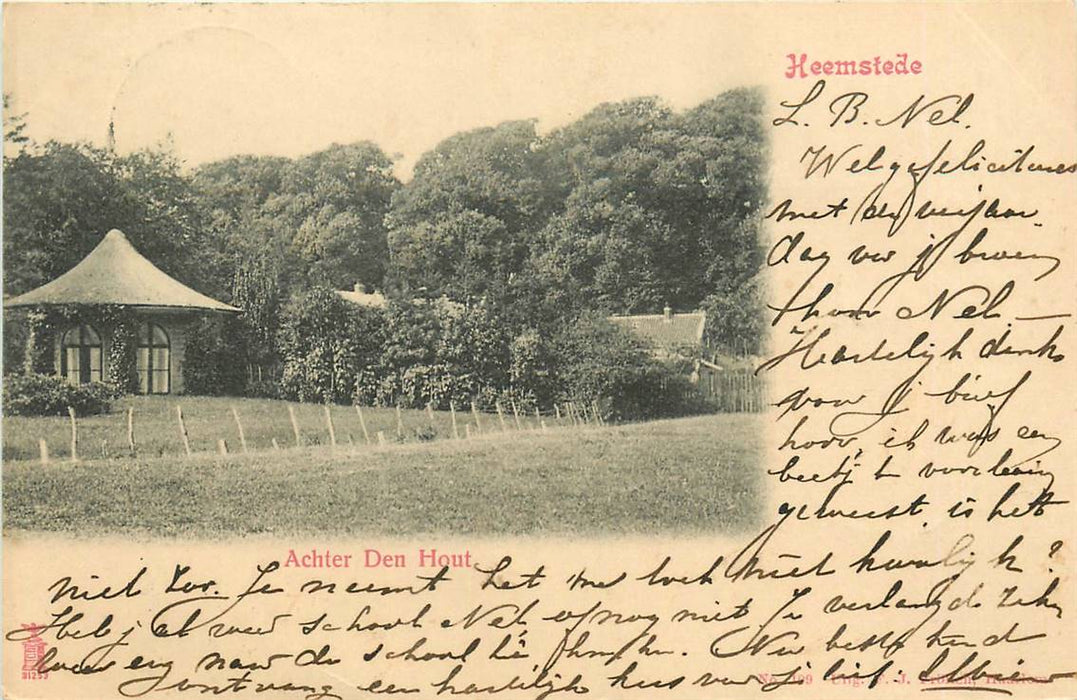 Heemstede
L. B. Nel.
Wel gefeliciteerd
met de verjaar
dag van je broer
hoor Nel. —
Hartelijk dank
voor je brief
hoor, ik was een
beetje t voorlezing
geweest, is het
Achter Den Hout.
niet Zoo. Je neemt het me toch niet kwalijk?
Heb je al weer school Nel, of nog niet. Je verlangd zeker
weer erg naar de school hè, . Nu beste kind
ontvang een hartelijk kus van je lief
91253